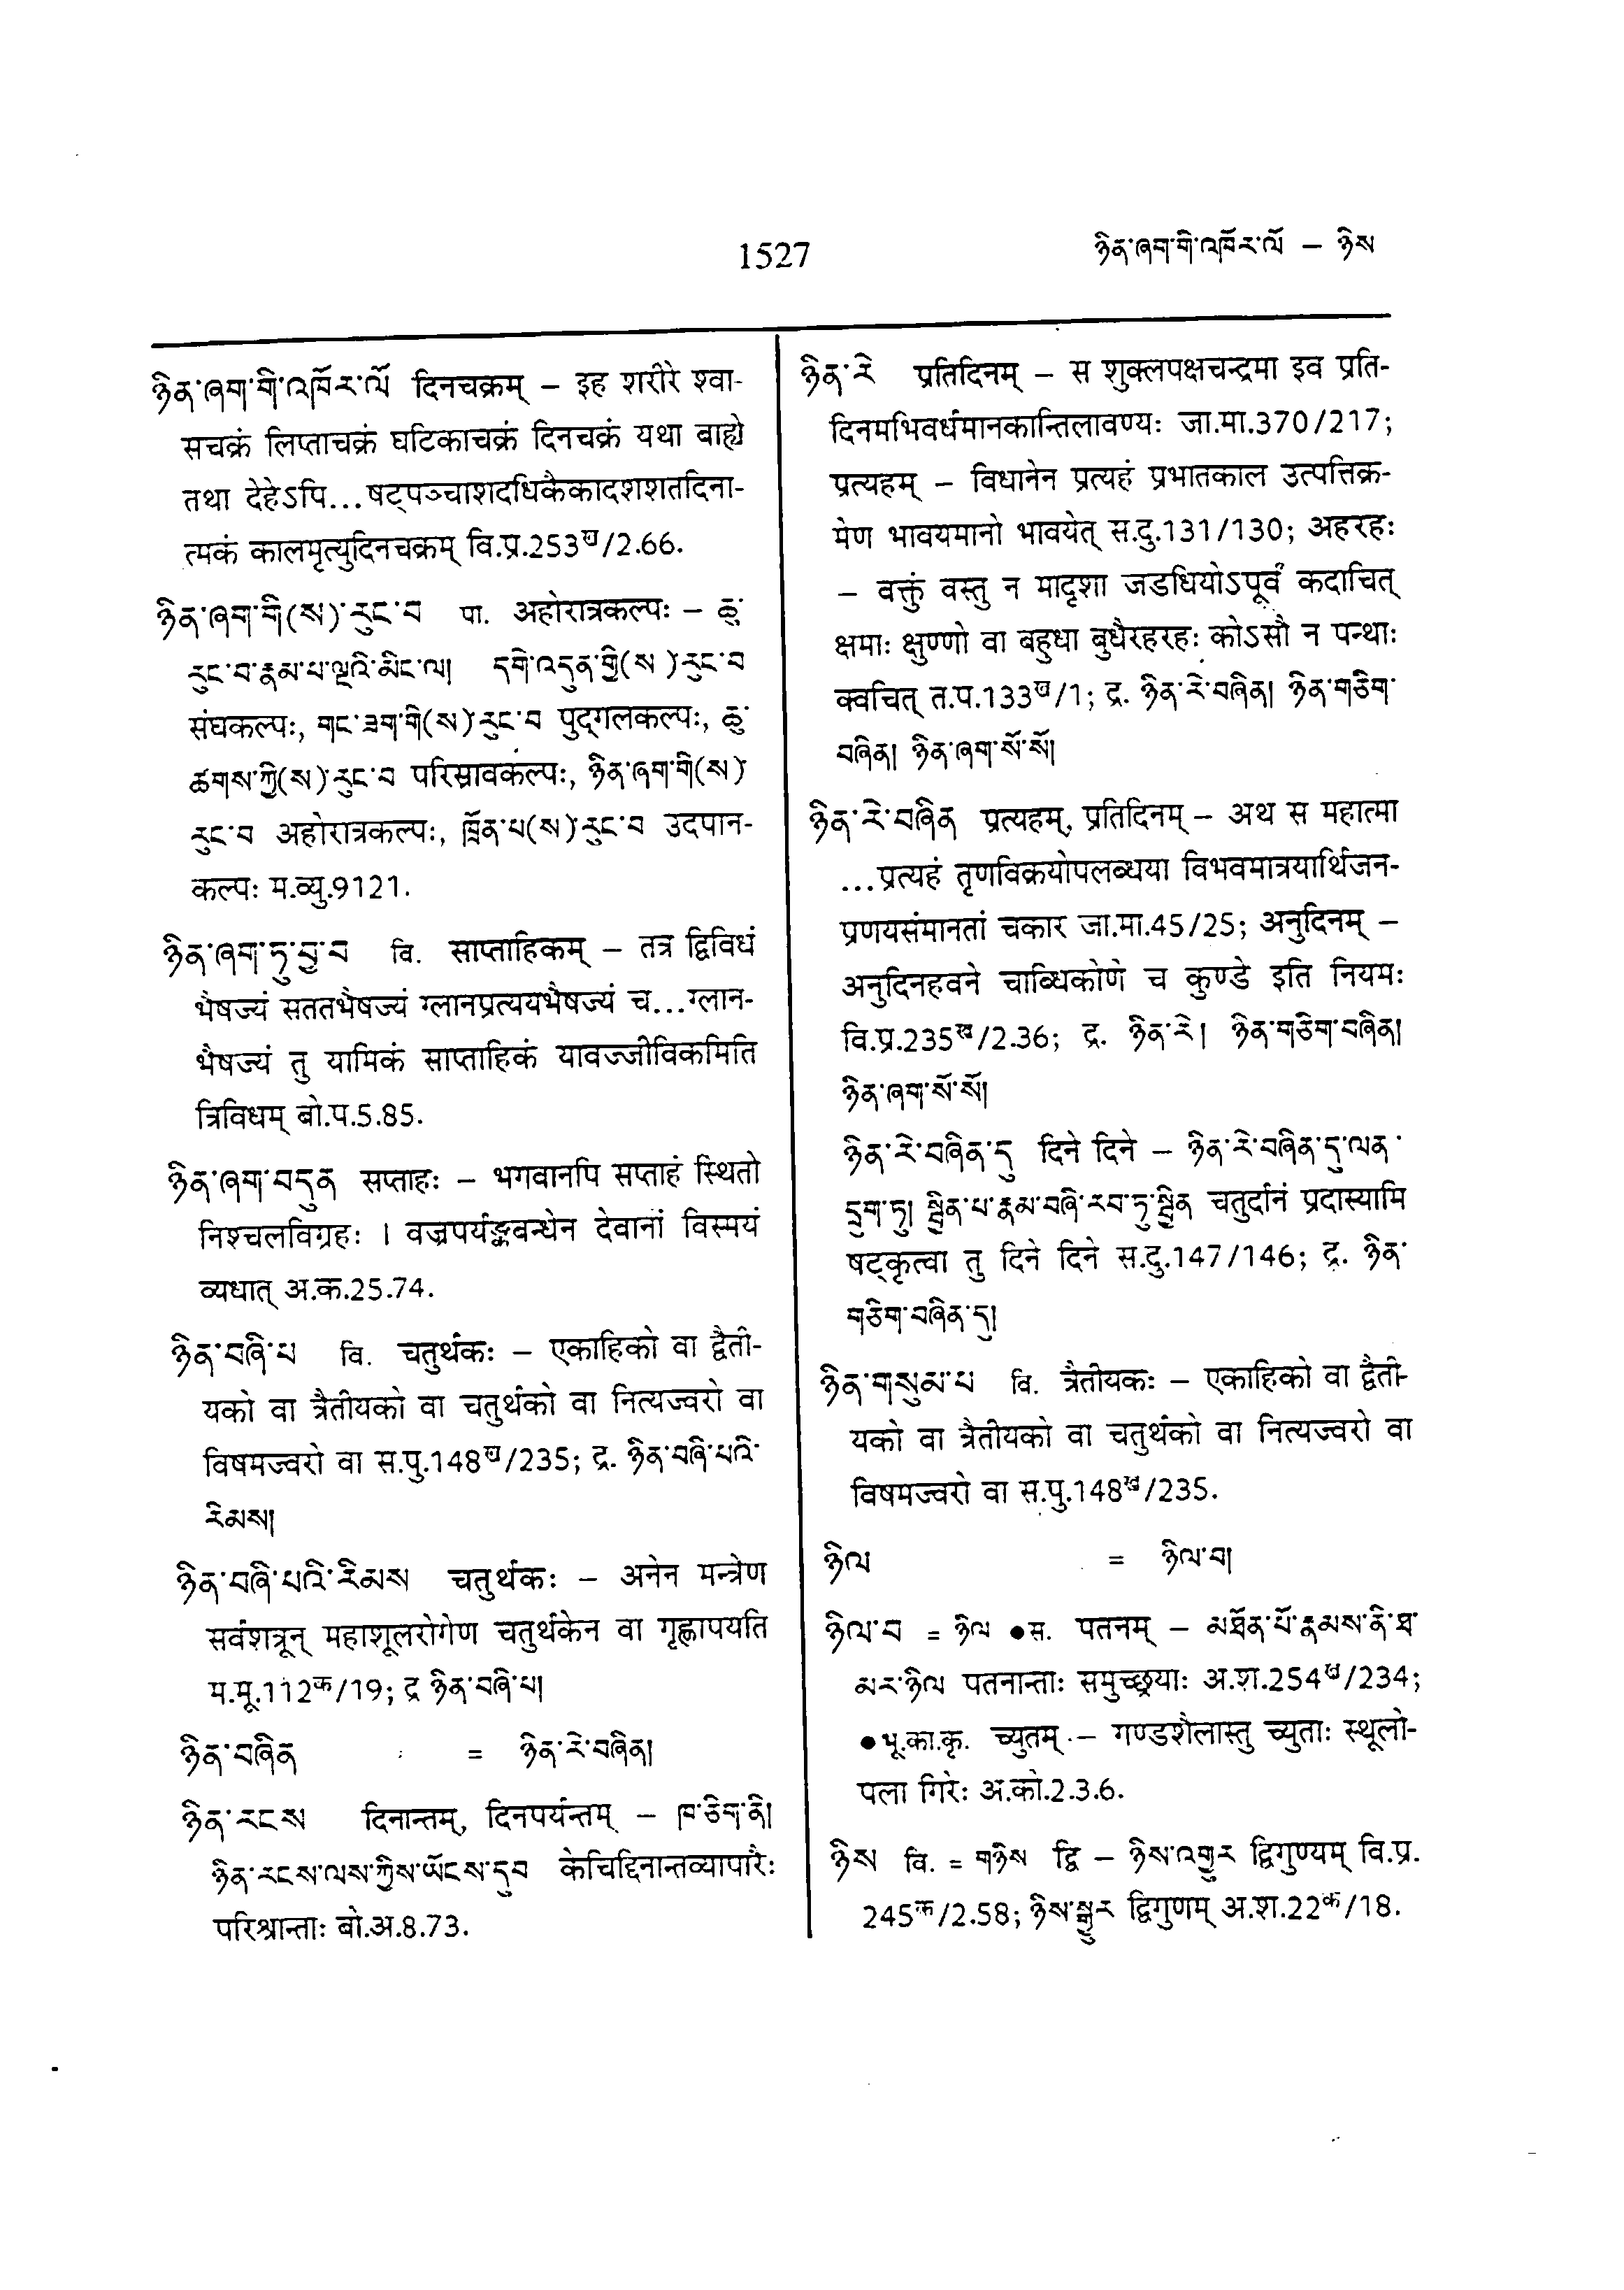 1527
ཉིན་ཞག་གི་འཁོར་ལོ – ཉིས
ཉིན་ཞག་གི་འཁོར་ལོ दिनचक्रम् – इह शरीरे श्वा-
सचक्रं लिप्ताचक्रं घटिकाचक्रं दिनचक्रं यथा बाह्ये
तथा देहेऽपि...षट्पञ्चाशदधिकैकादशशतदिना-
त्मकं कालमृत्युदिनचक्रम् वि.प्र.253ख/2.66.
ཉིན་ཞག་གི(ས)་རུང་བ पा. अहोरात्रकल्पः – ཆུ་
རུང་བ་རྣམ་པ་ལྔའི་མིང་ལ། དགེ་འདུན་གྱི(ས)་རུང་བ
संघकल्पः, གང་ཟག་གི(ས)་རུང་བ पुद्गलकल्पः, ཆུ་
ཚགས་ཀྱི(ས)་རུང་བ परिस्रावकल्पः, ཉིན་ཞག་གི(ས)་
རུང་བ अहोरात्रकल्पः, ཁྲོན་པ(ས)་རུང་བ उदपान-
कल्पः म.व्यु.9121.
ཉིན་ཞག་ཏུ་བྱ་བ वि. साप्ताहिकम् – तत्र द्विविधं
भैषज्यं सततभैषज्यं ग्लानप्रत्ययभैषज्यं च...ग्लान-
भैषज्यं तु यामिकं साप्ताहिकं यावज्जीविकमिति
त्रिविधम् बो.प.5.85.
ཉིན་ཞག་བདུན सप्ताहः – भगवानपि सप्ताहं स्थितो
निश्चलविग्रहः । वज्रपर्यङ्कबन्धेन देवानां विस्मयं
व्यधात् अ.क.25.74.
ཉིན་བཞི་པ वि. चतुर्थकः – एकाहिको वा द्वैती-
यको वा त्रैतीयको वा चतुर्थको वा नित्यज्वरो वा
विषमज्वरो वा स.पु.148ख/235; द्र. ཉིན་བཞི་པའི་
རིམས།
ཉིན་བཞི་པའི་རིམས चतुर्थकः – अनेन मन्त्रेण
सर्वशत्रून् महाशूलरोगेण चतुर्थकेन वा गृह्णापयति
म.मू.112क/19; द्र ཉིན་བཞི་པ།
ཉིན་བཞིན = ཉིན་རེ་བཞིན།
ཉིན་རངས दिनान्तम्, दिनपर्यन्तम् – ཁ་ཅིག་ནི།
ཉིན་རངས་ལས་ཀྱིས་ཡོངས་དུབ केचिद्दिनान्तव्यापारैः
परिश्रान्ताः बो.अ.8.73.
ཉིན་རེ प्रतिदिनम् – स शुक्लपक्षचन्द्रमा इव प्रति-
दिनमभिवर्धमानकान्तिलावण्यः जा.मा.370/217;
प्रत्यहम् – विधानेन प्रत्यहं प्रभातकाल उत्पत्तिक्र-
मेण भावयमानो भावयेत् स.दु.131/130; अहरहः
– वक्तुं वस्तु न मादृशा जडधियोऽपूर्वं कदाचित्
क्षमाः क्षुण्णो वा बहुधा बुधैरहरहः कोऽसौ न पन्थाः
क्वचित् त.प.133ख/1; द्र. ཉིན་རེ་བཞིན། ཉིན་གཅིག་
བཞིན། ཉིན་ཞག་སོ་སོ།
ཉིན་རེ་བཞིན प्रत्यहम्, प्रतिदिनम् – अथ स महात्मा
...प्रत्यहं तृणविक्रयोपलब्धया विभवमात्रयार्थिजन-
प्रणयसंमानतां चकार जा.मा.45/25; अनुदिनम् –
अनुदिनहवने चाब्धिकोणे च कुण्डे इति नियमः
वि.प्र.235ख/2.36; द्र. ཉིན་རེ། ཉིན་གཅིག་བཞིན།
ཉིན་ཞག་སོ་སོ།
ཉིན་རེ་བཞིན་དུ दिने दिने – ཉིན་རེ་བཞིན་དུ་ལན་
དྲུག་ཏུ། སྦྱིན་པ་རྣམ་བཞི་རབ་ཏུ་སྦྱིན चतुर्दानं प्रदास्यामि
षट्कृत्वा तु दिने दिने स.दु.147/146; द्र. ཉིན་
གཅིག་བཞིན་དུ།
ཉིན་གསུམ་པ वि. त्रैतीयकः – एकाहिको वा द्वैती-
यको वा त्रैतीयको वा चतुर्थको वा नित्यज्वरो वा
विषमज्वरो वा स.पु.148ख/235.
ཉིལ = ཉིལ་བ།
ཉིལ་བ = ཉིལ ●स. पतनम् – མཐོན་པོ་རྣམས་ནི་ཐ་
མར་ཉིལ पतनान्ताः समुच्छ्रयाः अ.श.254ख/234;
●भू.का.कृ. च्युतम् – गण्डशैलास्तु च्युताः स्थूलो-
पला गिरेः अ.को.2.3.6.
ཉིས वि. = གཉིས द्वि – ཉིས་འགྱུར द्विगुण्यम् वि.प्र.
245क/2.58; ཉིས་སྒྱུར द्विगुणम् अ.श.22क/18.